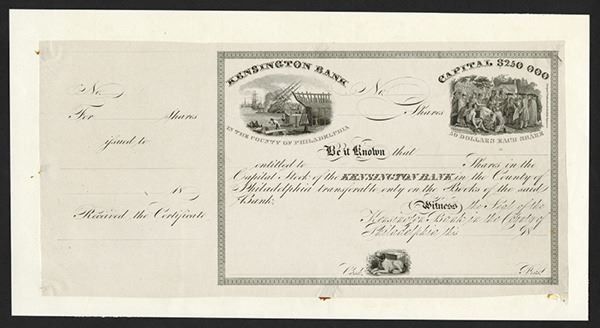 No.
For Shares
issued to
18
Received the Certificate
KENSINGTON BANK
IN THE COUNTY OF PHILADELPHIA
No.
Shares
CAPITAL $250 000
50 DOLLARS EACH SHARE
Be it Known that
entitled to Shares in the
Capital Stock of the KENSINGTON BANK in the County of
Philadelphia transferable only on the Books of the said
Bank.
Witness the Seal of the
Kensington Bank in the County of
Philadelphia this 18
Cash.
Prest.